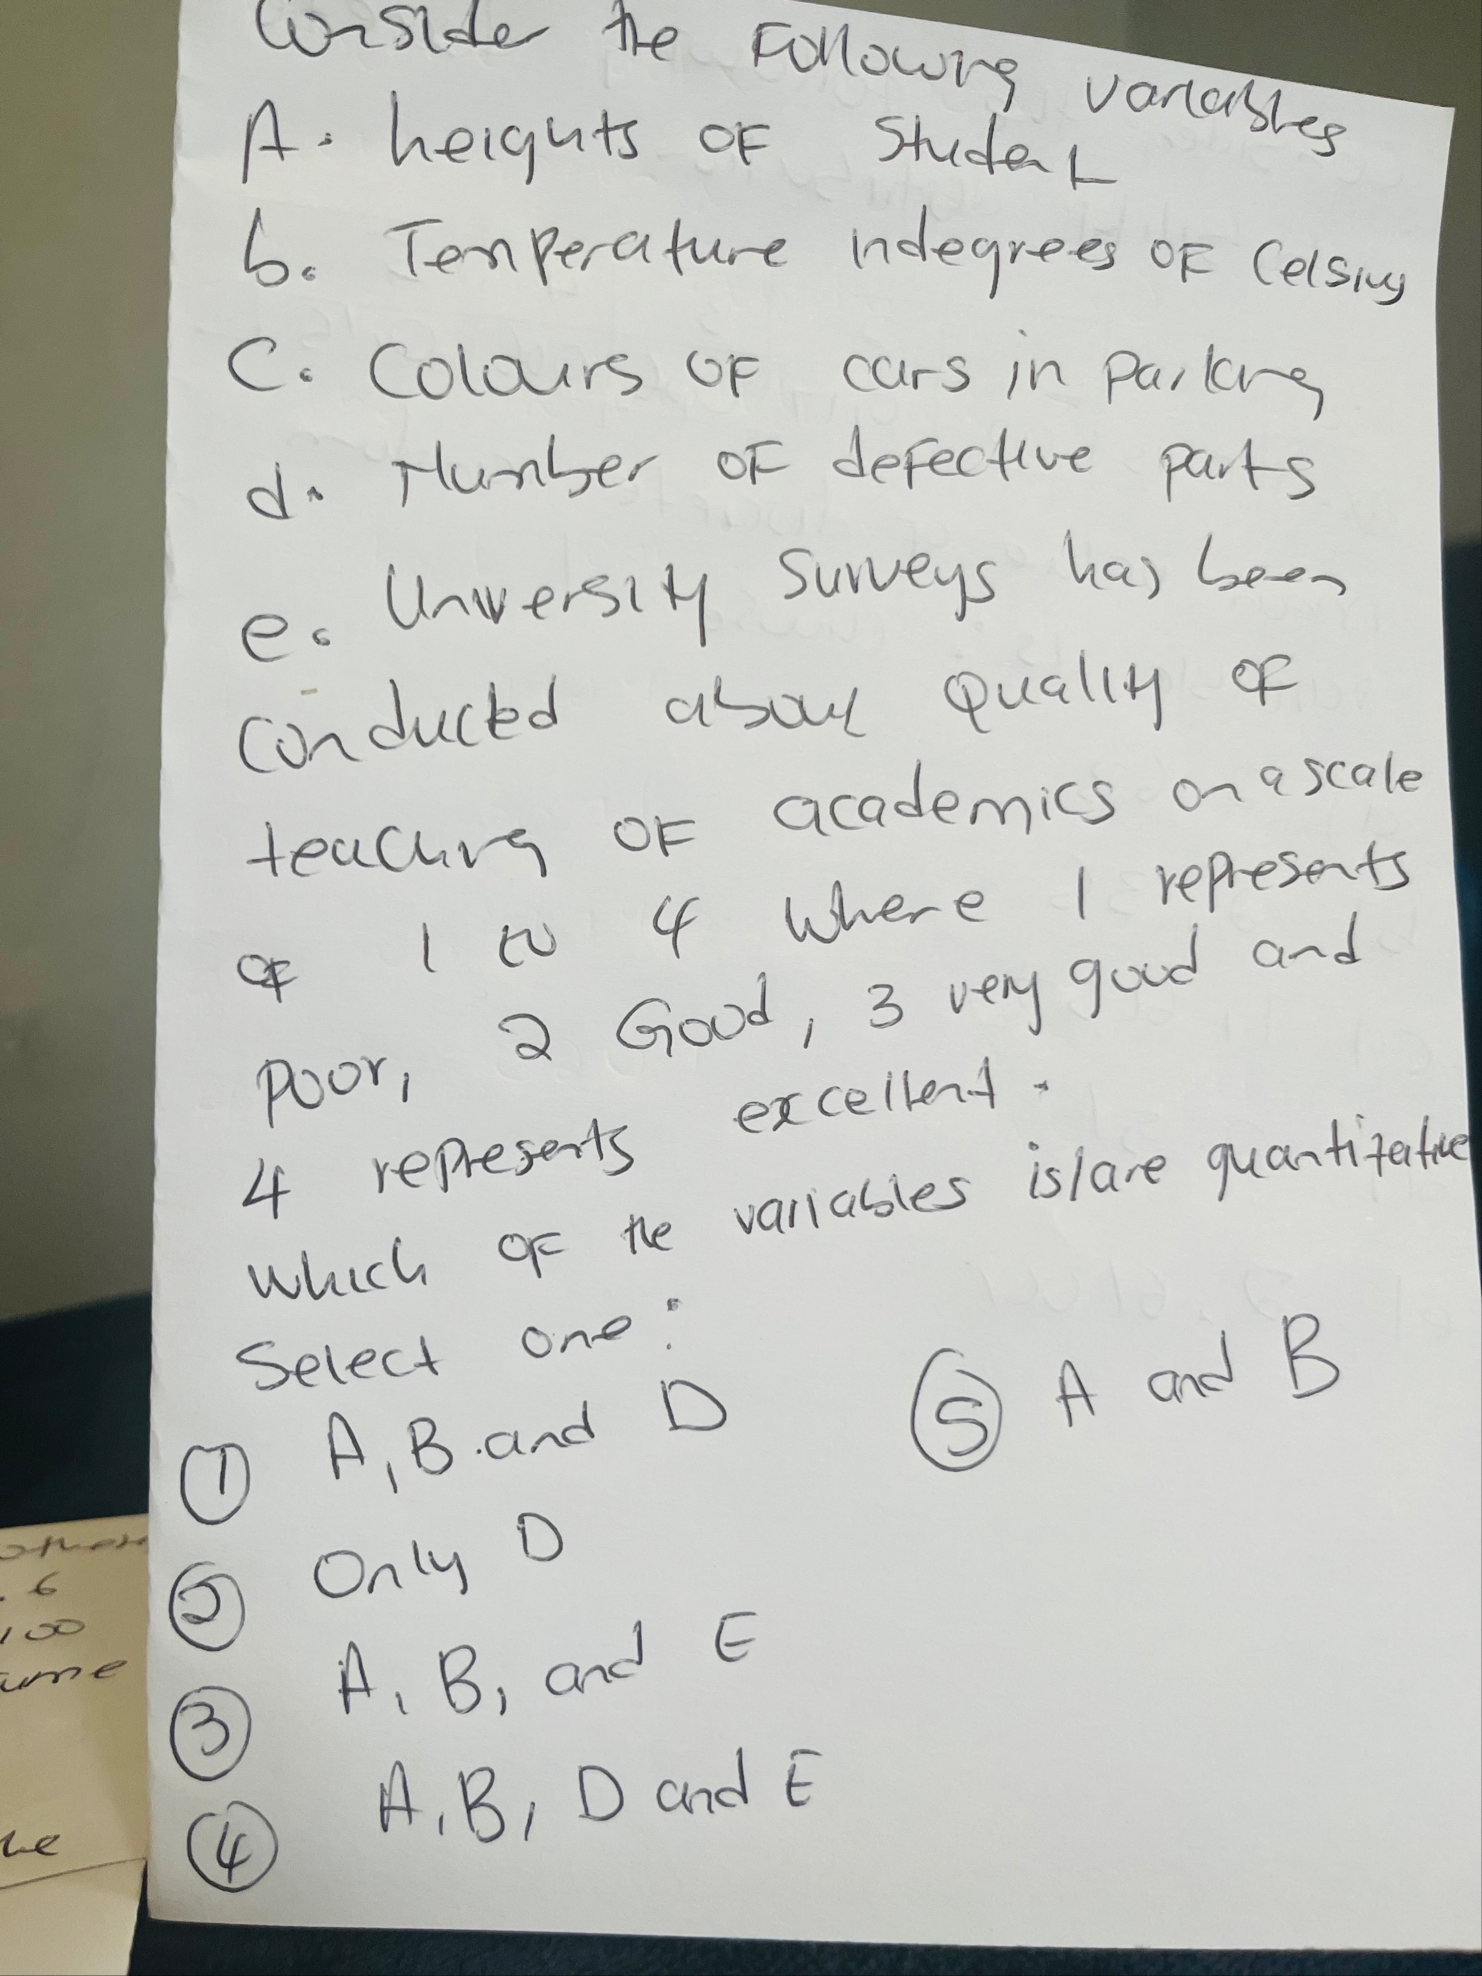 Consider the Following variables
A. heights of Student
b. Temperature in degrees of Celsius
C. Colours of cars in Parking
d. Number of defective parts
e. University Surveys has been
conducted about Quality of
teaching of academics on a scale
of 1 to 4 where 1 represents
poor, 2 Good, 3 very good and
4 represents excellent.
which of the variables is/are quantitative
Select one:
① A, B and D
⑤ A and B
② Only D
③ A, B, and E
④ A, B, D and E
6
100